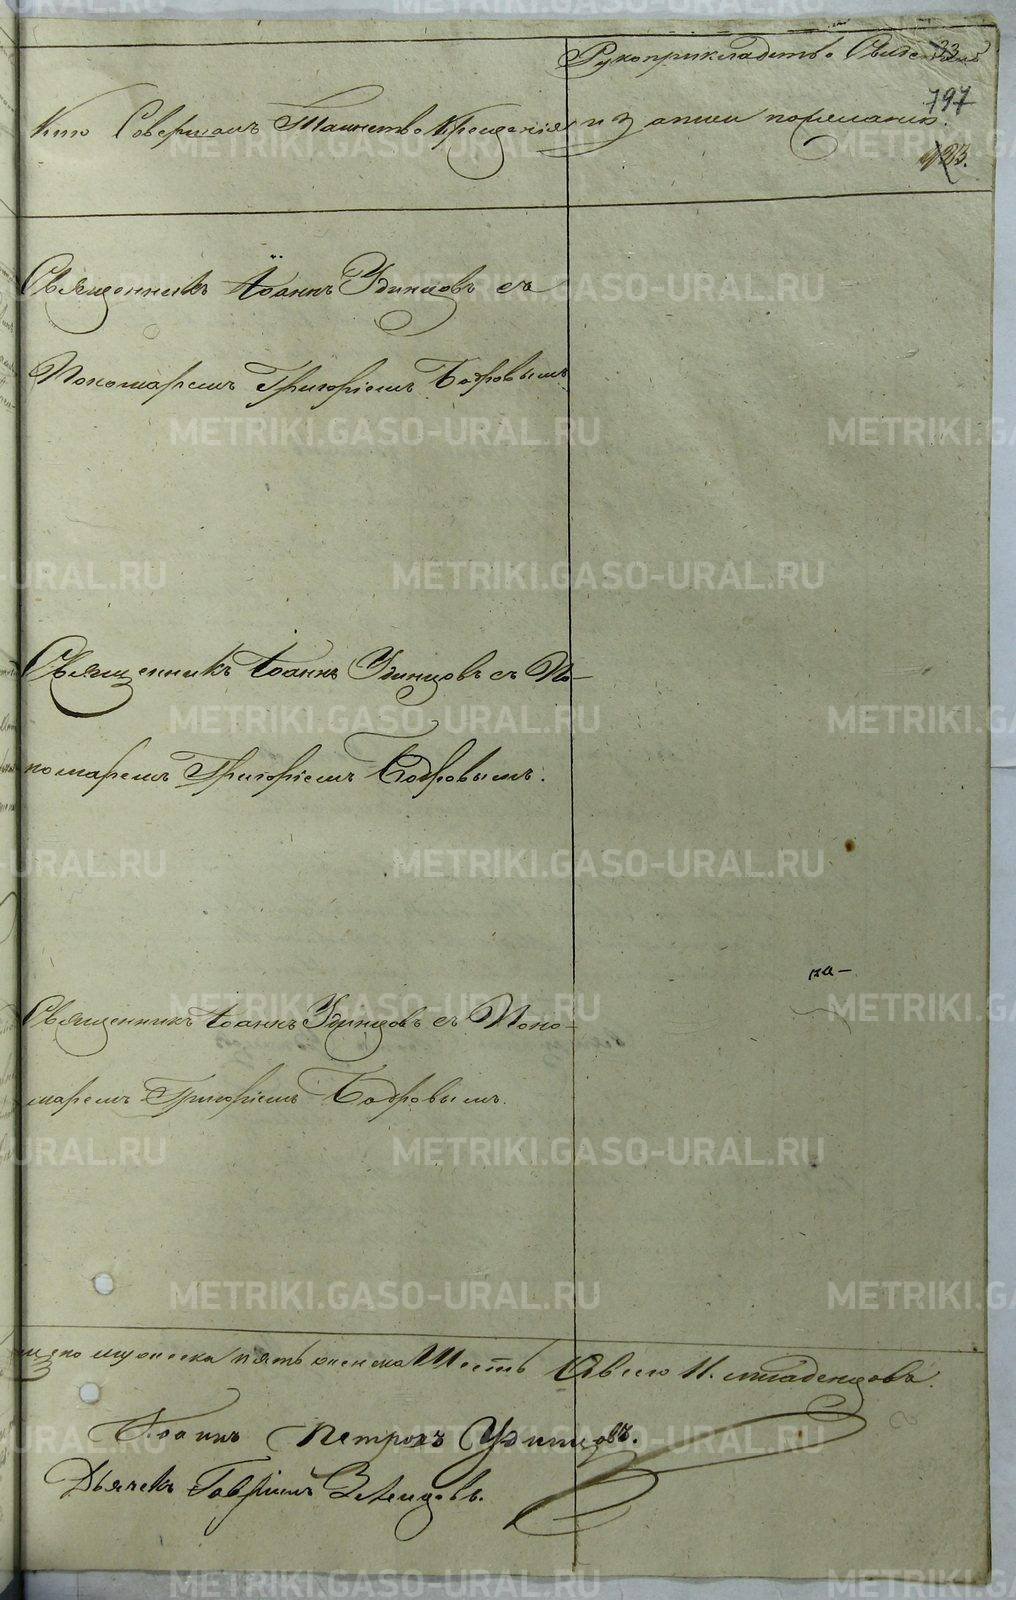 Рукоприкладство Свидетелей
33
797
Кто Совершалъ Таинство Крещенія
и Записи пожеланію.
923.
Священникъ Іоаннъ Удинцовъ съ
Пономаремъ Григоріемъ Бобровымъ
Священникъ Іоаннъ Удинцовъ съ По-
номаремъ Григоріемъ Бобровымъ.
на-
Священникъ Іоаннъ Удинцовъ съ Поно-
маремъ Григоріемъ Бобровымъ.
мужеска пять женска Шесть Авсего 11. младенцовъ.
Іоаннъ Петровъ Удинцовъ.
Дьячекъ Гавріилъ
METRIKI.GASO-URAL.RU